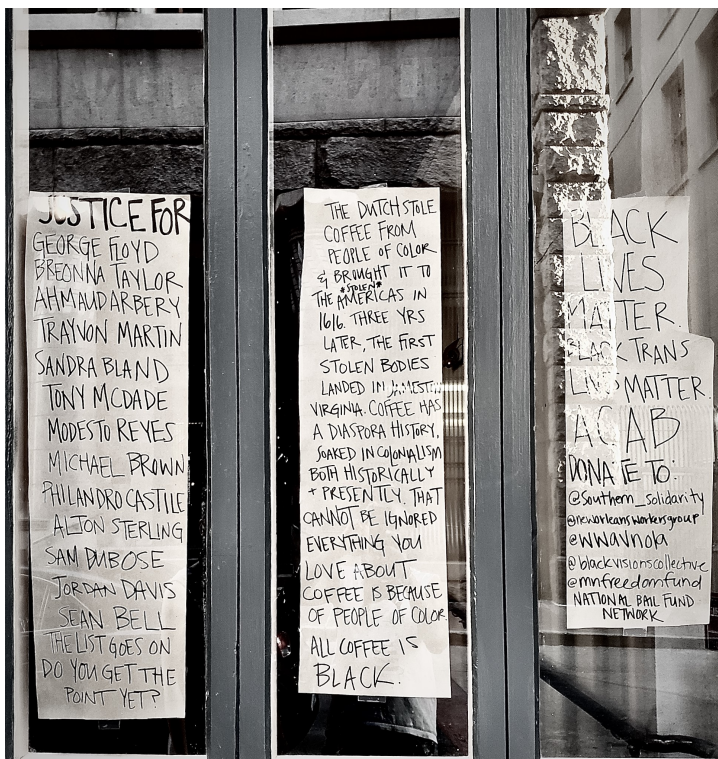 JUSTICE FOR
GEORGE FLOYD
BREONNA TAYLOR
AHMAUD ARBERY
TRAYVON MARTIN
SANDRA BLAND
TONY MCDADE
MODESTO REYES
MICHAEL BROWN
PHILANDRO CASTILE
ALTON STERLING
SAM DUBOSE
JORDAN DAVIS
SEAN BELL
THE LIST GOES ON
DO YOU GET THE
POINT YET?
THE DUTCH STOLE
COFFEE FROM
PEOPLE OF COLOR
& BROUGHT IT TO
*STOLEN*
THE AMERICAS IN
1616. THREE YRS
LATER, THE FIRST
STOLEN BODIES
LANDED IN
VIRGINIA. COFFEE HAS
A DIASPORA HISTORY,
SOAKED IN COLONIALISM
BOTH HISTORICALLY
+ PRESENTLY, THAT
CANNOT BE IGNORED
EVERYTHING YOU
LOVE ABOUT
COFFEE IS BECAUSE
OF PEOPLE OF COLOR.
ALL COFFEE IS
BLACK.
BLACK
LIVES
MATTER.
BLACK TRANS
LIVES MATTER.
ACAB
DONATE TO:
@southern_solidarity
@neworleansworkersgroup
@wwavnola
@blackvisionscollective
@mnfreedomfund
NATIONAL BAIL FUND
NETWORK